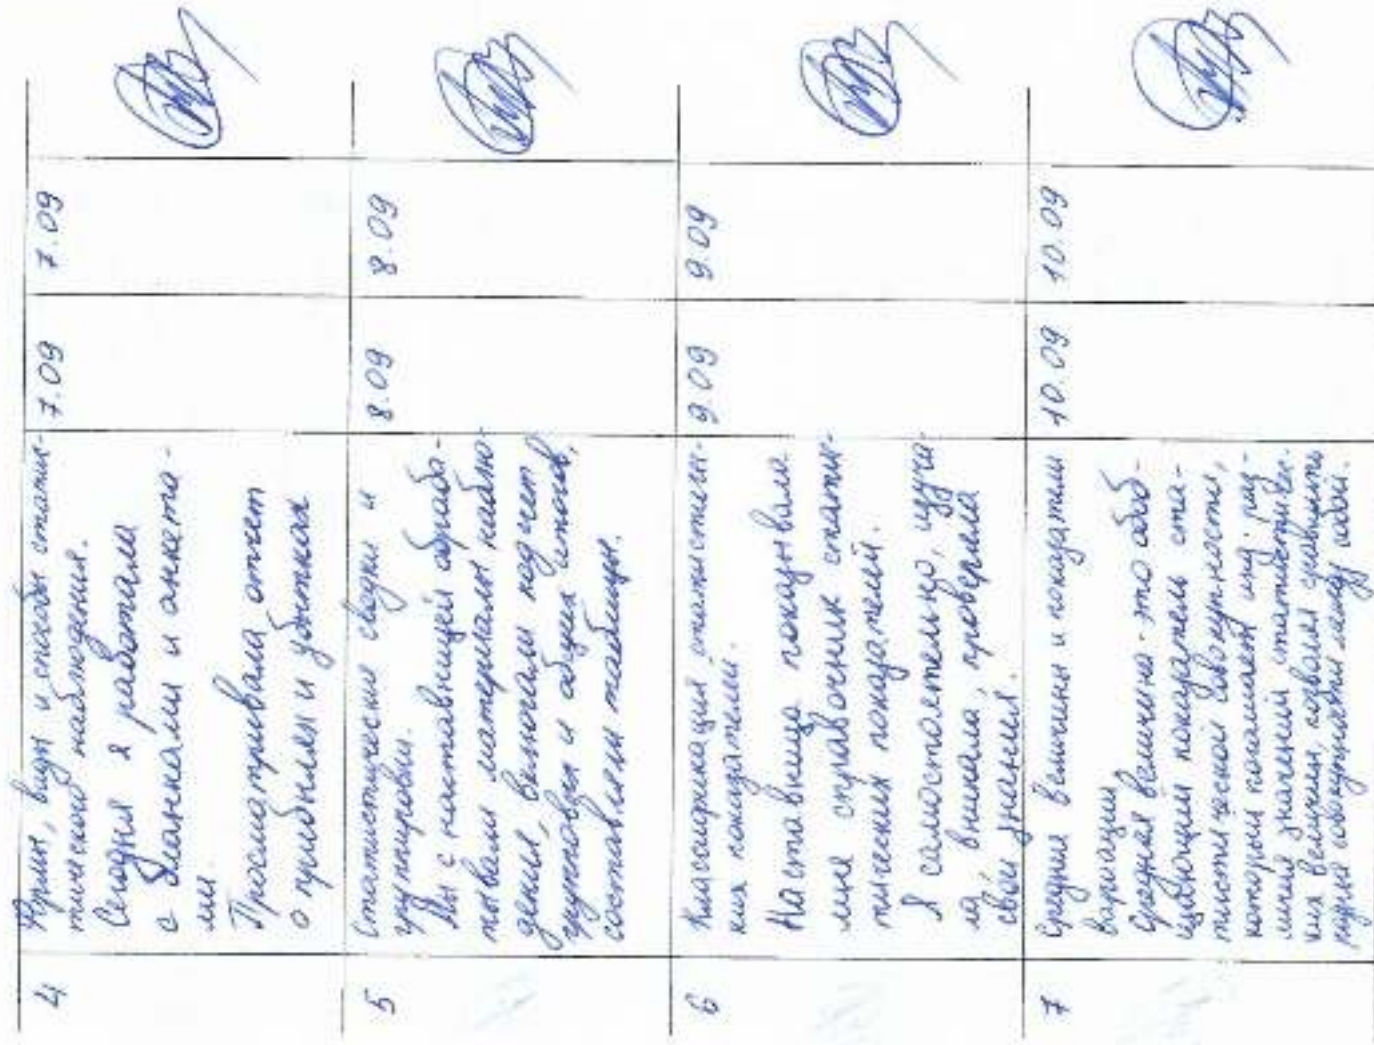 4
Формы, виды и способы статис-
тического наблюдения.
Сегодня я работала
с бланками и анкета-
ми.
Просматривала отчет
о прибылях и убытках
7.09
7.09
5
Статистические сводки и
группировки.
Мы с наставницей обраба-
тывали материалы наблю-
дения, вели подсчет
групповых и общих итогов,
составляли таблицы.
8.09
8.09
6
Классификация статистичес-
ких показателей.
Наставница показывала
мне справочник статис-
тических показателей.
Я самостоятельно, изуча-
ла, вникала, проверяла
свои знания.
9.09
9.09
7
Средние величины и показатели
вариации
Средняя величина - это обоб-
щающий показатель ста-
тистической совокупности,
который погашает инд. раз-
личия значений статистичес-
ких величин, позволяя сравнивать
разные совокупности между собой.
10.09
10.09